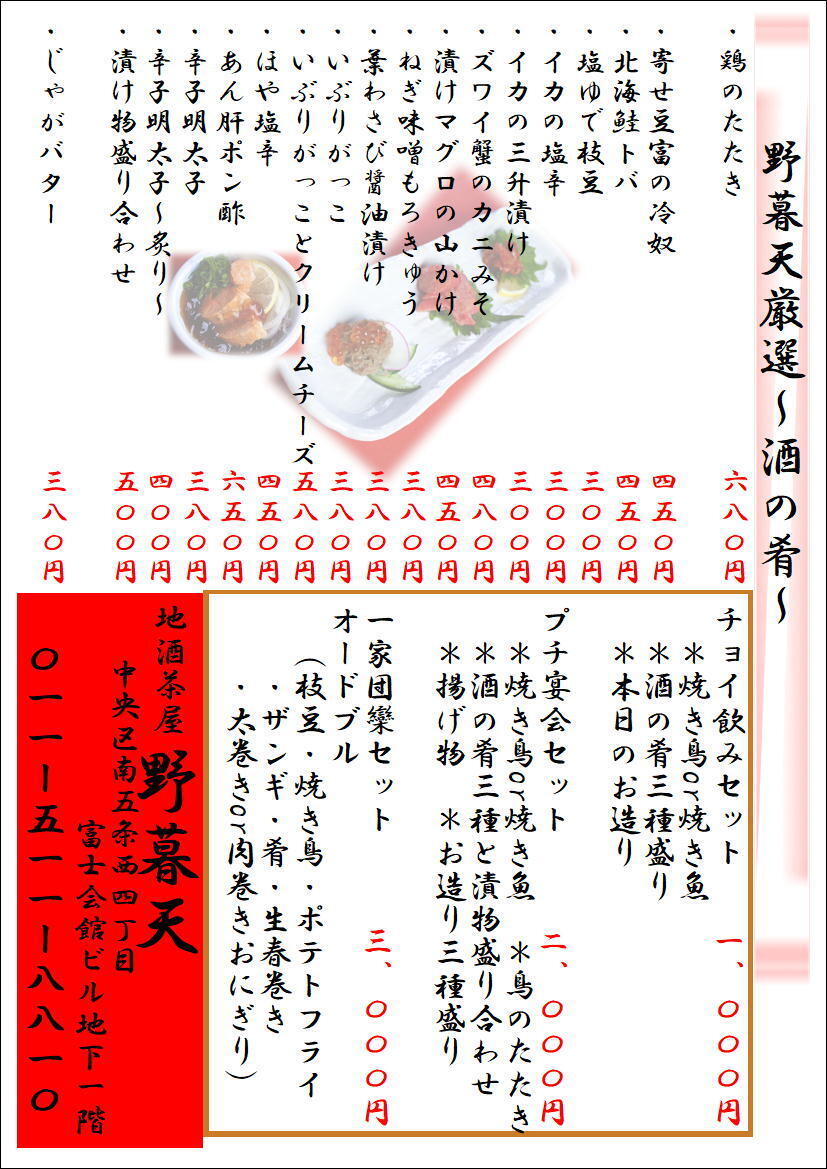 野暮天厳選～酒の肴～
・鶏のたたき 六八〇円
・寄せ豆富の冷奴 四五〇円
・北海鮭トバ 四五〇円
・塩ゆで枝豆 三〇〇円
・イカの塩辛 三〇〇円
・イカの三升漬け 三〇〇円
・ズワイ蟹のカニみそ 四八〇円
・漬けマグロの山かけ 四五〇円
・ねぎ味噌もろきゅう 三八〇円
・葉わさび醤油漬け 三八〇円
・いぶりがっこ 三八〇円
・いぶりがっことクリームチーズ 五八〇円
・ほや塩辛 四五〇円
・あん肝ポン酢 六五〇円
・辛子明太子 三八〇円
・辛子明太子～炙り～ 四〇〇円
・漬け物盛り合わせ 五〇〇円
・じゃがバター 三八〇円
チョイ飲みセット 一、〇〇〇円
＊焼き鳥or焼き魚
＊酒の肴三種盛り
＊本日のお造り
プチ宴会セット 二、〇〇〇円
＊焼き鳥or焼き魚 ＊鳥のたたき
＊酒の肴三種と漬物盛り合わせ
＊揚げ物 ＊お造り三種盛り
一家団欒セット 三、〇〇〇円
オードブル
（枝豆・焼き鳥・ポテトフライ
・ザンギ・肴・生春巻き
・太巻きor肉巻きおにぎり）
地酒茶屋 野暮天
中央区南五条西四丁目
富士会館ビル地下一階
〇一一ー五一一ー八八一〇